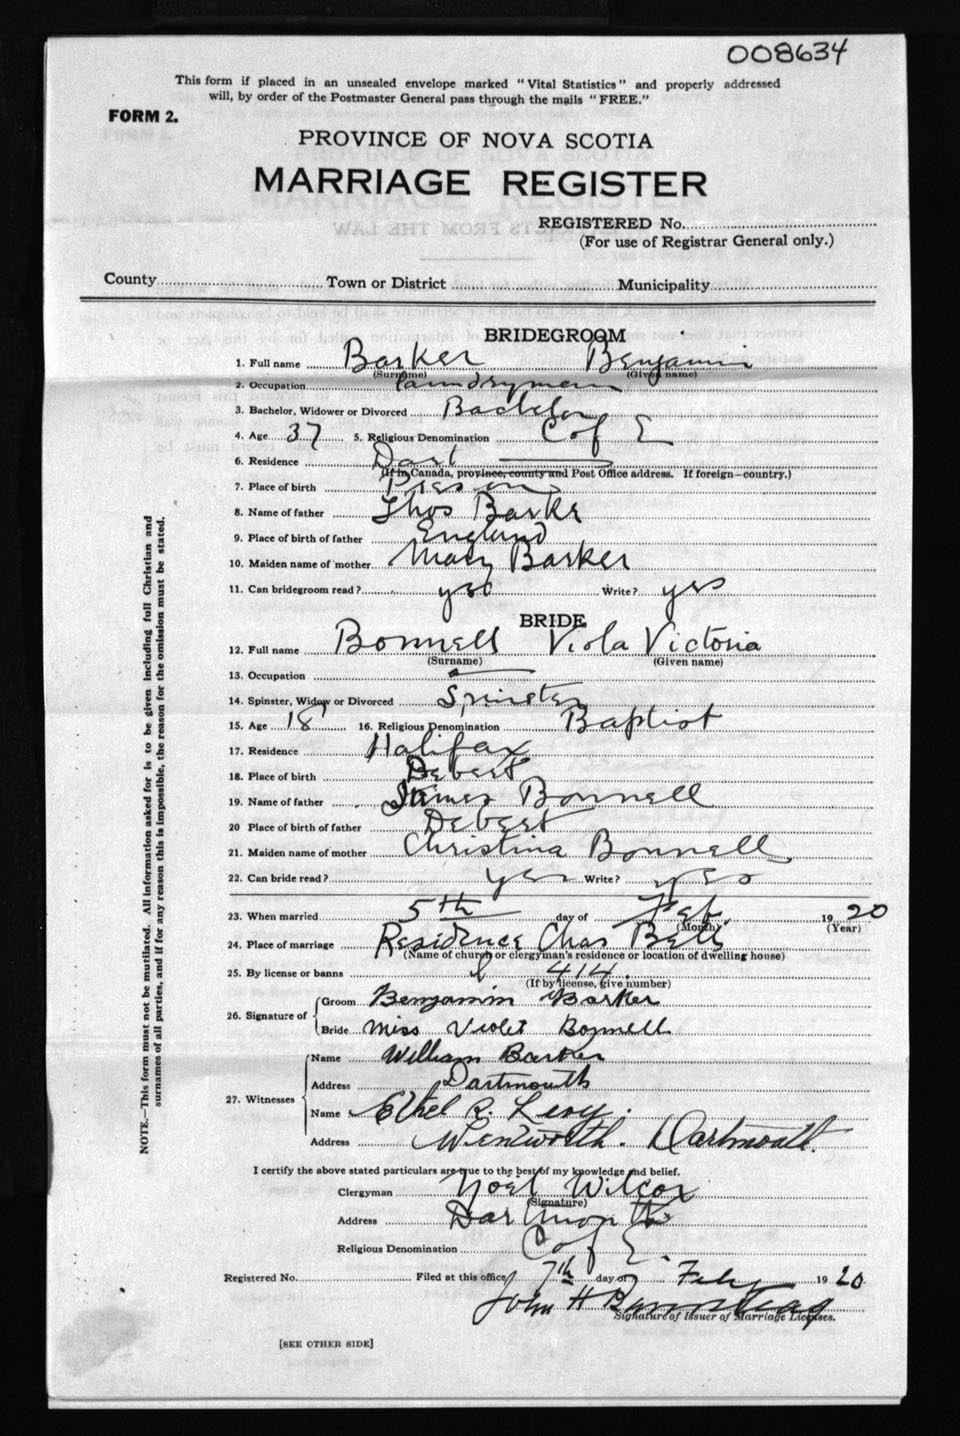 008634
This form if placed in an unsealed envelope marked "Vital Statistics" and properly addressed
will, by order of the Postmaster General pass through the mails "FREE."
FORM 2.
PROVINCE OF NOVA SCOTIA
MARRIAGE REGISTER
REGISTERED No.
(For use of Registrar General only.)
County Town or District Municipality
BRIDEGROOM
1. Full name Barker Benjamin
(Surname) (Given name)
2. Occupation Laundryman
3. Bachelor, Widower or Divorced Bachelor
4. Age 37 5. Religious Denomination C of E
6. Residence Dart
(If in Canada, province, county and Post Office address. If foreign—country.)
7. Place of birth Preston
8. Name of father Thos Barker
9. Place of birth of father England
10. Maiden name of mother Mary Barker
11. Can bridegroom read? yes Write? yes
BRIDE
12. Full name Bonnell Viola Victoria
(Surname) (Given name)
13. Occupation
14. Spinster, Widow or Divorced Spinster
15. Age 18 16. Religious Denomination Baptist
17. Residence Halifax
18. Place of birth Debert
19. Name of father James Bonnell
20 Place of birth of father Debert
21. Maiden name of mother Christina Bonnell
22. Can bride read? yes Write? yes
23. When married 5th day of Feb. 1920
(Month) (Year)
24. Place of marriage Residence Chas Bell
(Name of church or clergyman's residence or location of dwelling house)
25. By license or banns l 414.
(If by license, give number)
26. Signature of Groom Benjamin Barker
Bride Miss Violet Bonnell
27. Witnesses Name William Barker
Address Dartmouth
Name Ethel R. Levy.
Address Wentworth. Dartmouth.
I certify the above stated particulars are true to the best of my knowledge and belief.
Clergyman Noel Wilcox
(Signature)
Address Dartmouth
Religious Denomination C of E.
Registered No. Filed at this office 7th day of Feby 1920
John H
Signature of Issuer of Marriage Licenses.
[SEE OTHER SIDE]
NOTE.—This form must not be mutilated. All information asked for is to be given including full Christian and
surnames of all parties, and if for any reason this is impossible, the reason for the omission must be stated.